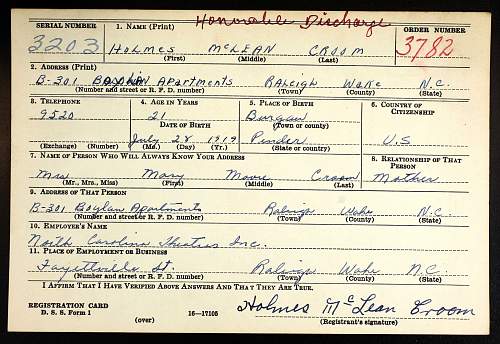 Honorable Discharge
SERIAL NUMBER 1. NAME (Print) ORDER NUMBER
3203 HOLMES McLEAN CROOM 3782
(First) (Middle) (Last)
2. ADDRESS (Print)
B-301 BOYLAN Apartments RALEigh WAKE N.C.
(Number and street or R. F. D. number) (Town) (County) (State)
3. TELEPHONE 4. AGE IN YEARS 5. PLACE OF BIRTH 6. COUNTRY OF CITIZENSHIP
9520 21 Burgaw
DATE OF BIRTH (Town or county)
July 28 1919 Pender U.S
(Exchange) (Number) (Mo.) (Day) (Yr.) (State or country)
7. NAME OF PERSON WHO WILL ALWAYS KNOW YOUR ADDRESS 8. RELATIONSHIP OF THAT PERSON
Mrs. Mary Moore Croom Mother
(Mr., Mrs., Miss) (First) (Middle) (Last)
9. ADDRESS OF THAT PERSON
B-301 Boylan Apartments Raleigh Wake N.C.
(Number and street or R. F. D. number) (Town) (County) (State)
10. EMPLOYER'S NAME
North Carolina Theatres Inc.
11. PLACE OF EMPLOYMENT OR BUSINESS
Fayetteville St. Raleigh Wake N.C.
(Number and street or R. F. D. number) (Town) (County) (State)
I AFFIRM THAT I HAVE VERIFIED ABOVE ANSWERS AND THAT THEY ARE TRUE.
REGISTRATION CARD Holmes McLean Croom
D. S. S. Form 1 (over) 16—17105 (Registrant's signature)